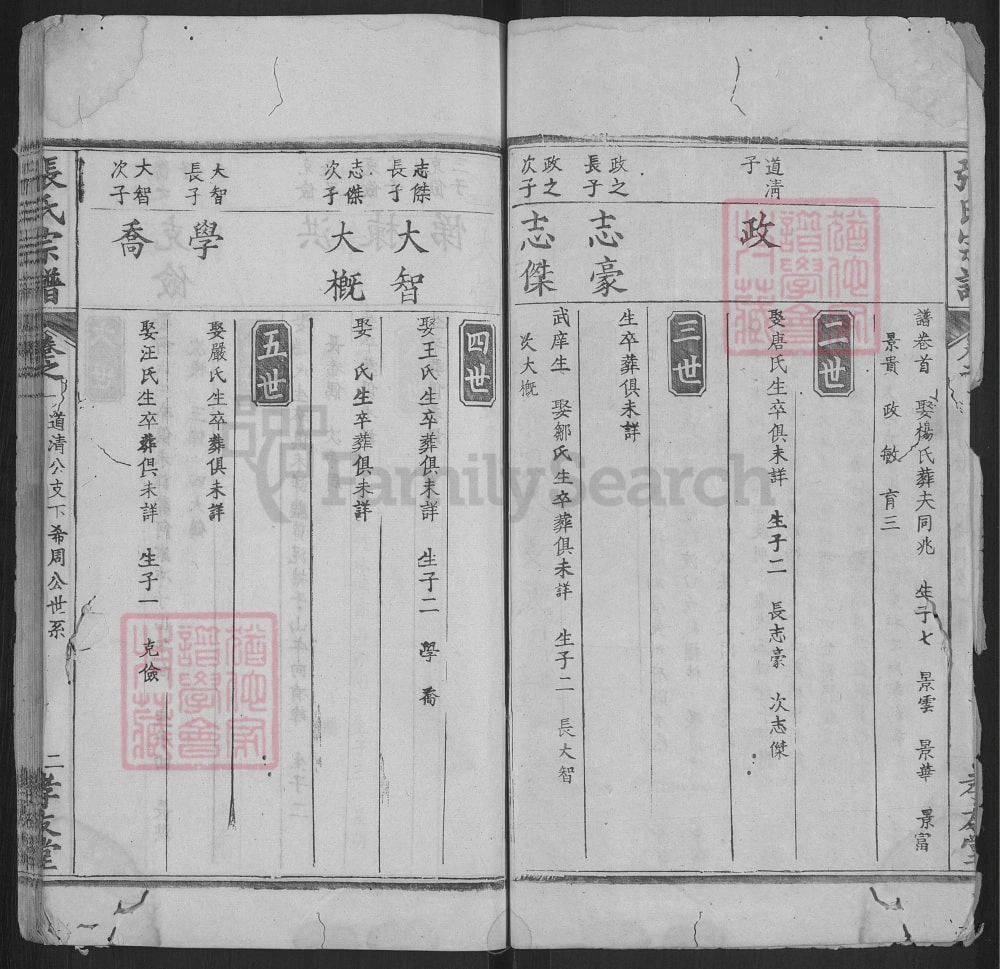 譜卷首 娶楊氏葬夫同兆 生子七 景雲 景華 景富
景貴 政 敏 育三
二世
道清子
政
娶唐氏生卒俱未詳 生子二 長志豪 次志傑
三世
政之長子
志豪
生卒葬俱未詳
政之次子
志傑
武庠生 娶鄒氏生卒葬俱未詳 生子二 長大智
次大概
四世
志傑長子
大智
娶王氏生卒葬俱未詳 生子二 學 喬
志傑次子
大概
娶 氏生卒葬俱未詳
五世
大智長子
學
娶嚴氏生卒葬俱未詳
大智次子
喬
娶汪氏生卒葬俱未詳 生子一 克儉
張氏宗譜 卷之一 道清公支下希周公世系 二 孝友堂
FamilySearch